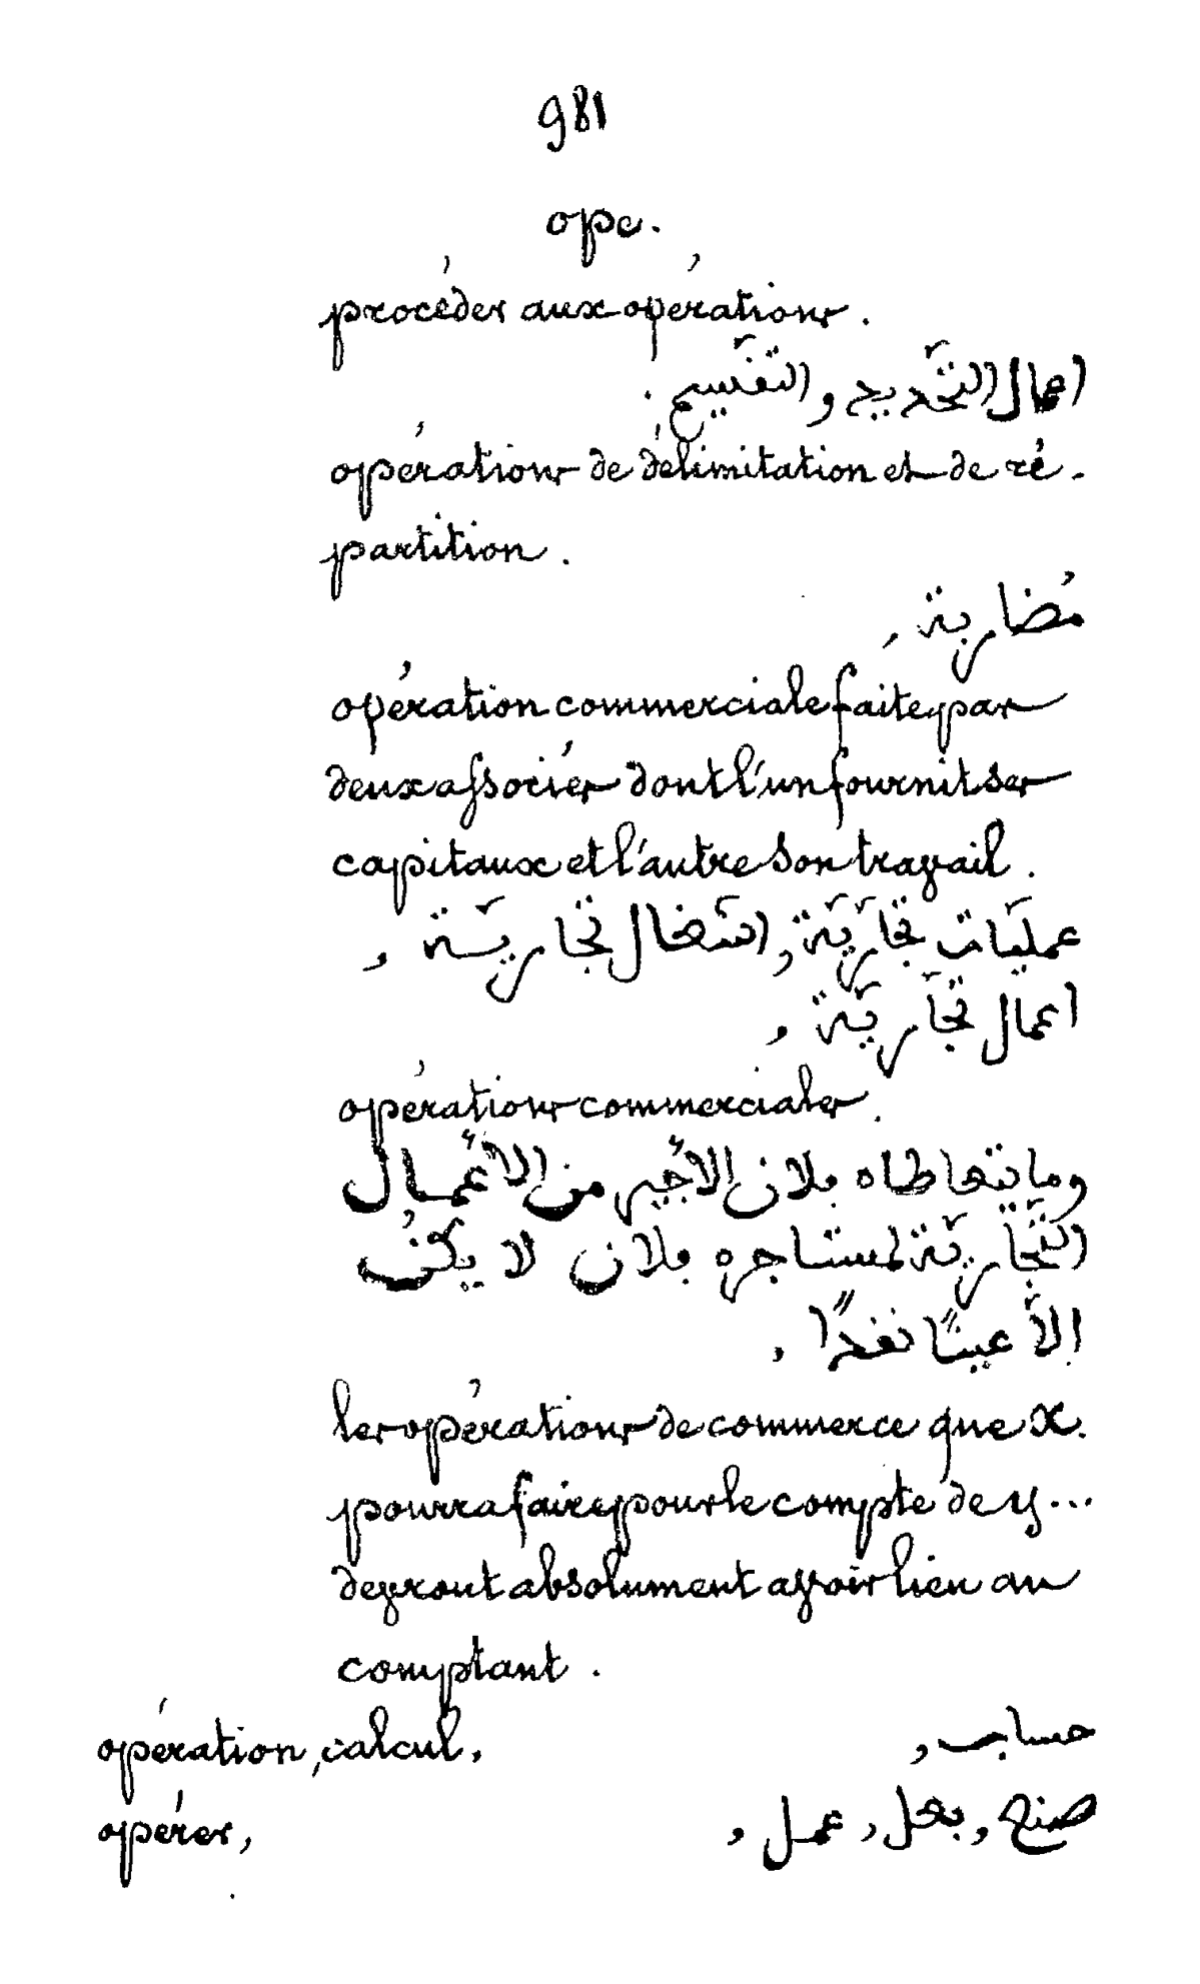 981
ope.
procéder aux opérations.
اعمال التّحديد والتّقسيم.
opérations de délimitation et de ré-
partition.
مُضاربة,
opération commerciale faite par
deux associés dont l'un fournit ses
capitaux et l'autre son travail.
عمليّات تجَاريّة, اشغال تجاريّة,
اعمال تجَاريّة,
opérations commerciales.
وما يتعاطاه فلان الأجير من الأعمال
التّجَاريّة لمستاجره فلان لا يكنُ
الاّ عينًا نقدًا,
les opérations de commerce que X.
pourra faire pour le compte de y...
devront absolument avoir lieu au
comptant.
opération, calcul, حساب,
opérer, صنع, فعل, عمل,